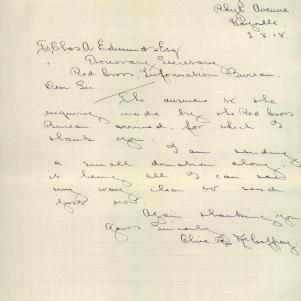 Rhyl Avenue
2.8.18.
To Chas A Edmunds Esq.
Honorary Secretary
Red Cross Information Bureau.
Dear Sir.
The answer to the
enquiry made by the Red Cross
Bureau arrived, for which I
thank you.
I am sending
a small donation along,
it being all I can see
my way clear to send
just now.
Again thanking you
Yours Sincerely
Olive McCaffrey